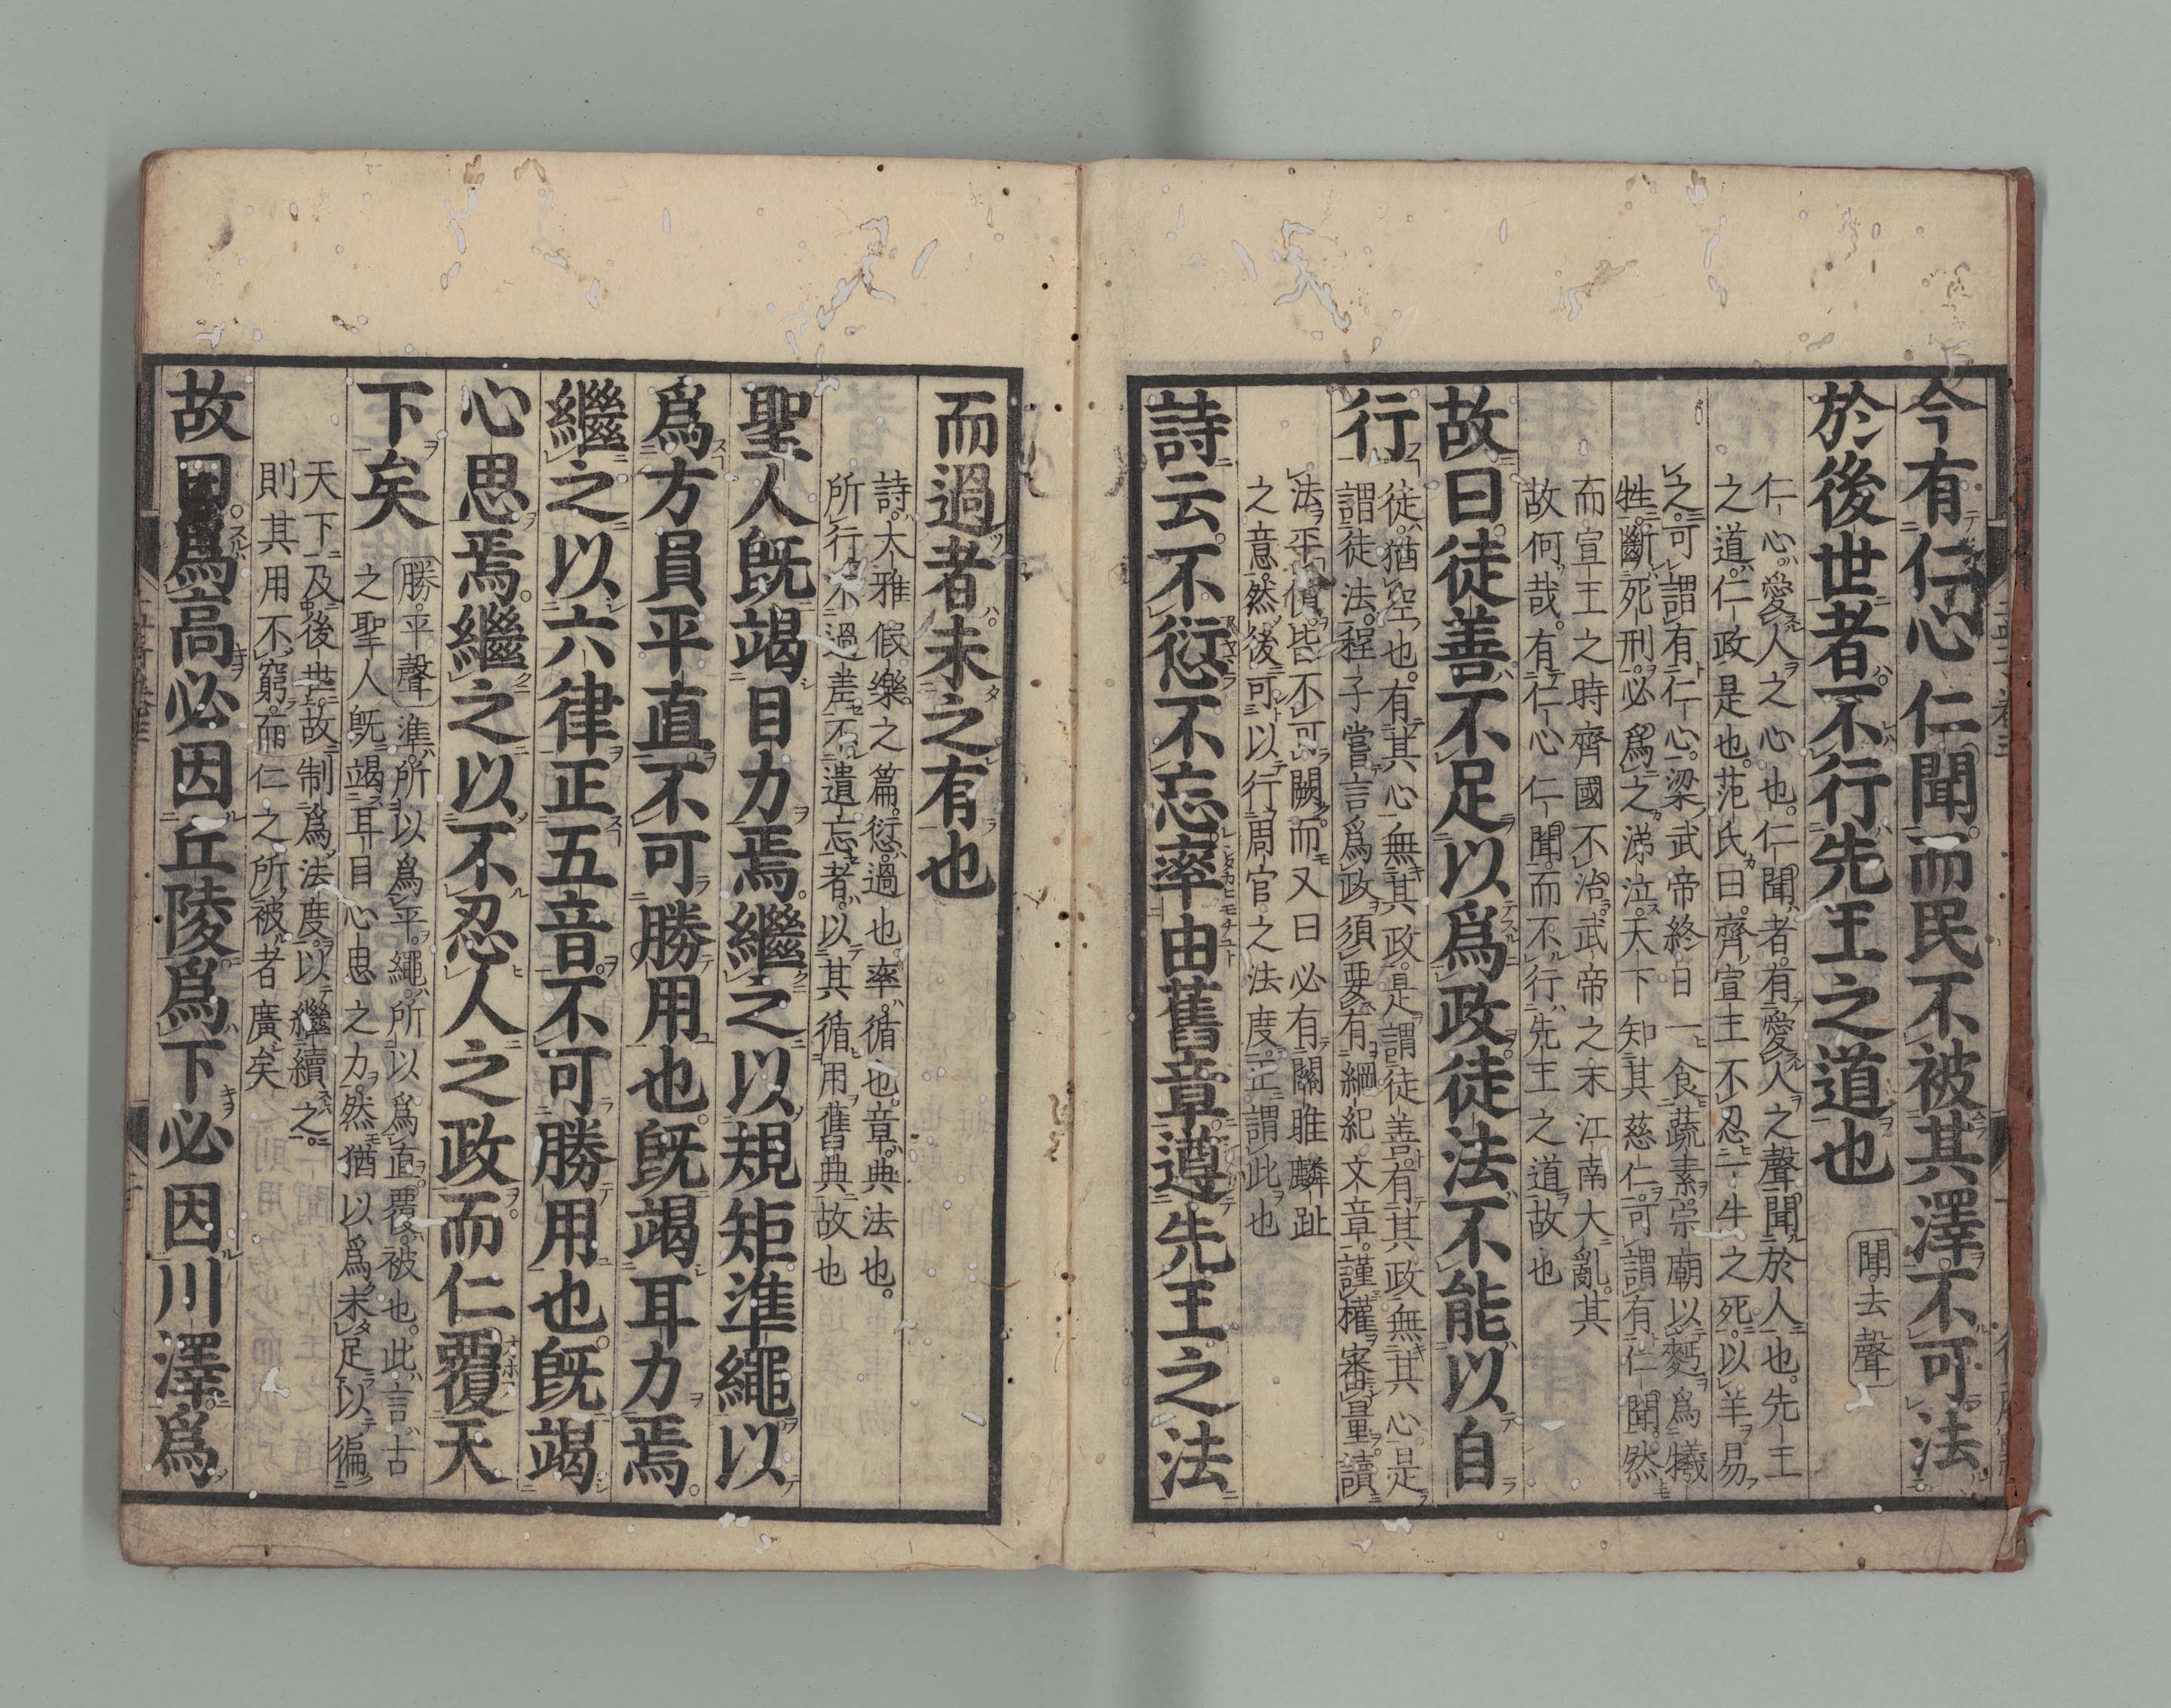 今有仁心仁聞而民不被其澤不可法
於後世者不行先王之道也
聞去聲
仁心愛人之心也仁聞者有愛人之聲聞於人也先王
之道仁政是也范氏曰齊宣王不忍一牛之死以羊易
之可謂有仁心梁武帝終日一食蔬素宗廟以麪爲犧
牲斷死刑必爲之涕泣天下知其慈仁可謂有仁聞然
而宣王之時齊國不治武帝之末江南大亂其
故何哉有仁心仁聞而不行先王之道故也
故曰徒善不足以爲政徒法不能以自
行
徒猶空也有其心無其政是謂徒善有其政無其心是
謂徒法程子嘗言爲政須要有綱紀文章謹權審量讀
法平價皆不可闕而又曰必有關雎麟趾
之意然後可以行周官之法度正謂此也
詩云不愆不忘率由舊章遵先王之法
而過者未之有也
詩大雅假樂之篇愆過也率循也章典法也
所行不過差不遺忘者以其循用舊典故也
聖人旣竭目力焉繼之以規矩準繩以
爲方員平直不可勝用也旣竭耳力焉
繼之以六律正五音不可勝用也旣竭
心思焉繼之以不忍人之政而仁覆天
下矣
勝平聲
準所以爲平繩所以爲直覆被也此言古
之聖人旣竭耳目心思之力然猶以爲未足以徧
天下及後世故制爲法度以繼續之
則其用不窮而仁之所被者廣矣
故曰爲高必因丘陵爲下必因川澤爲